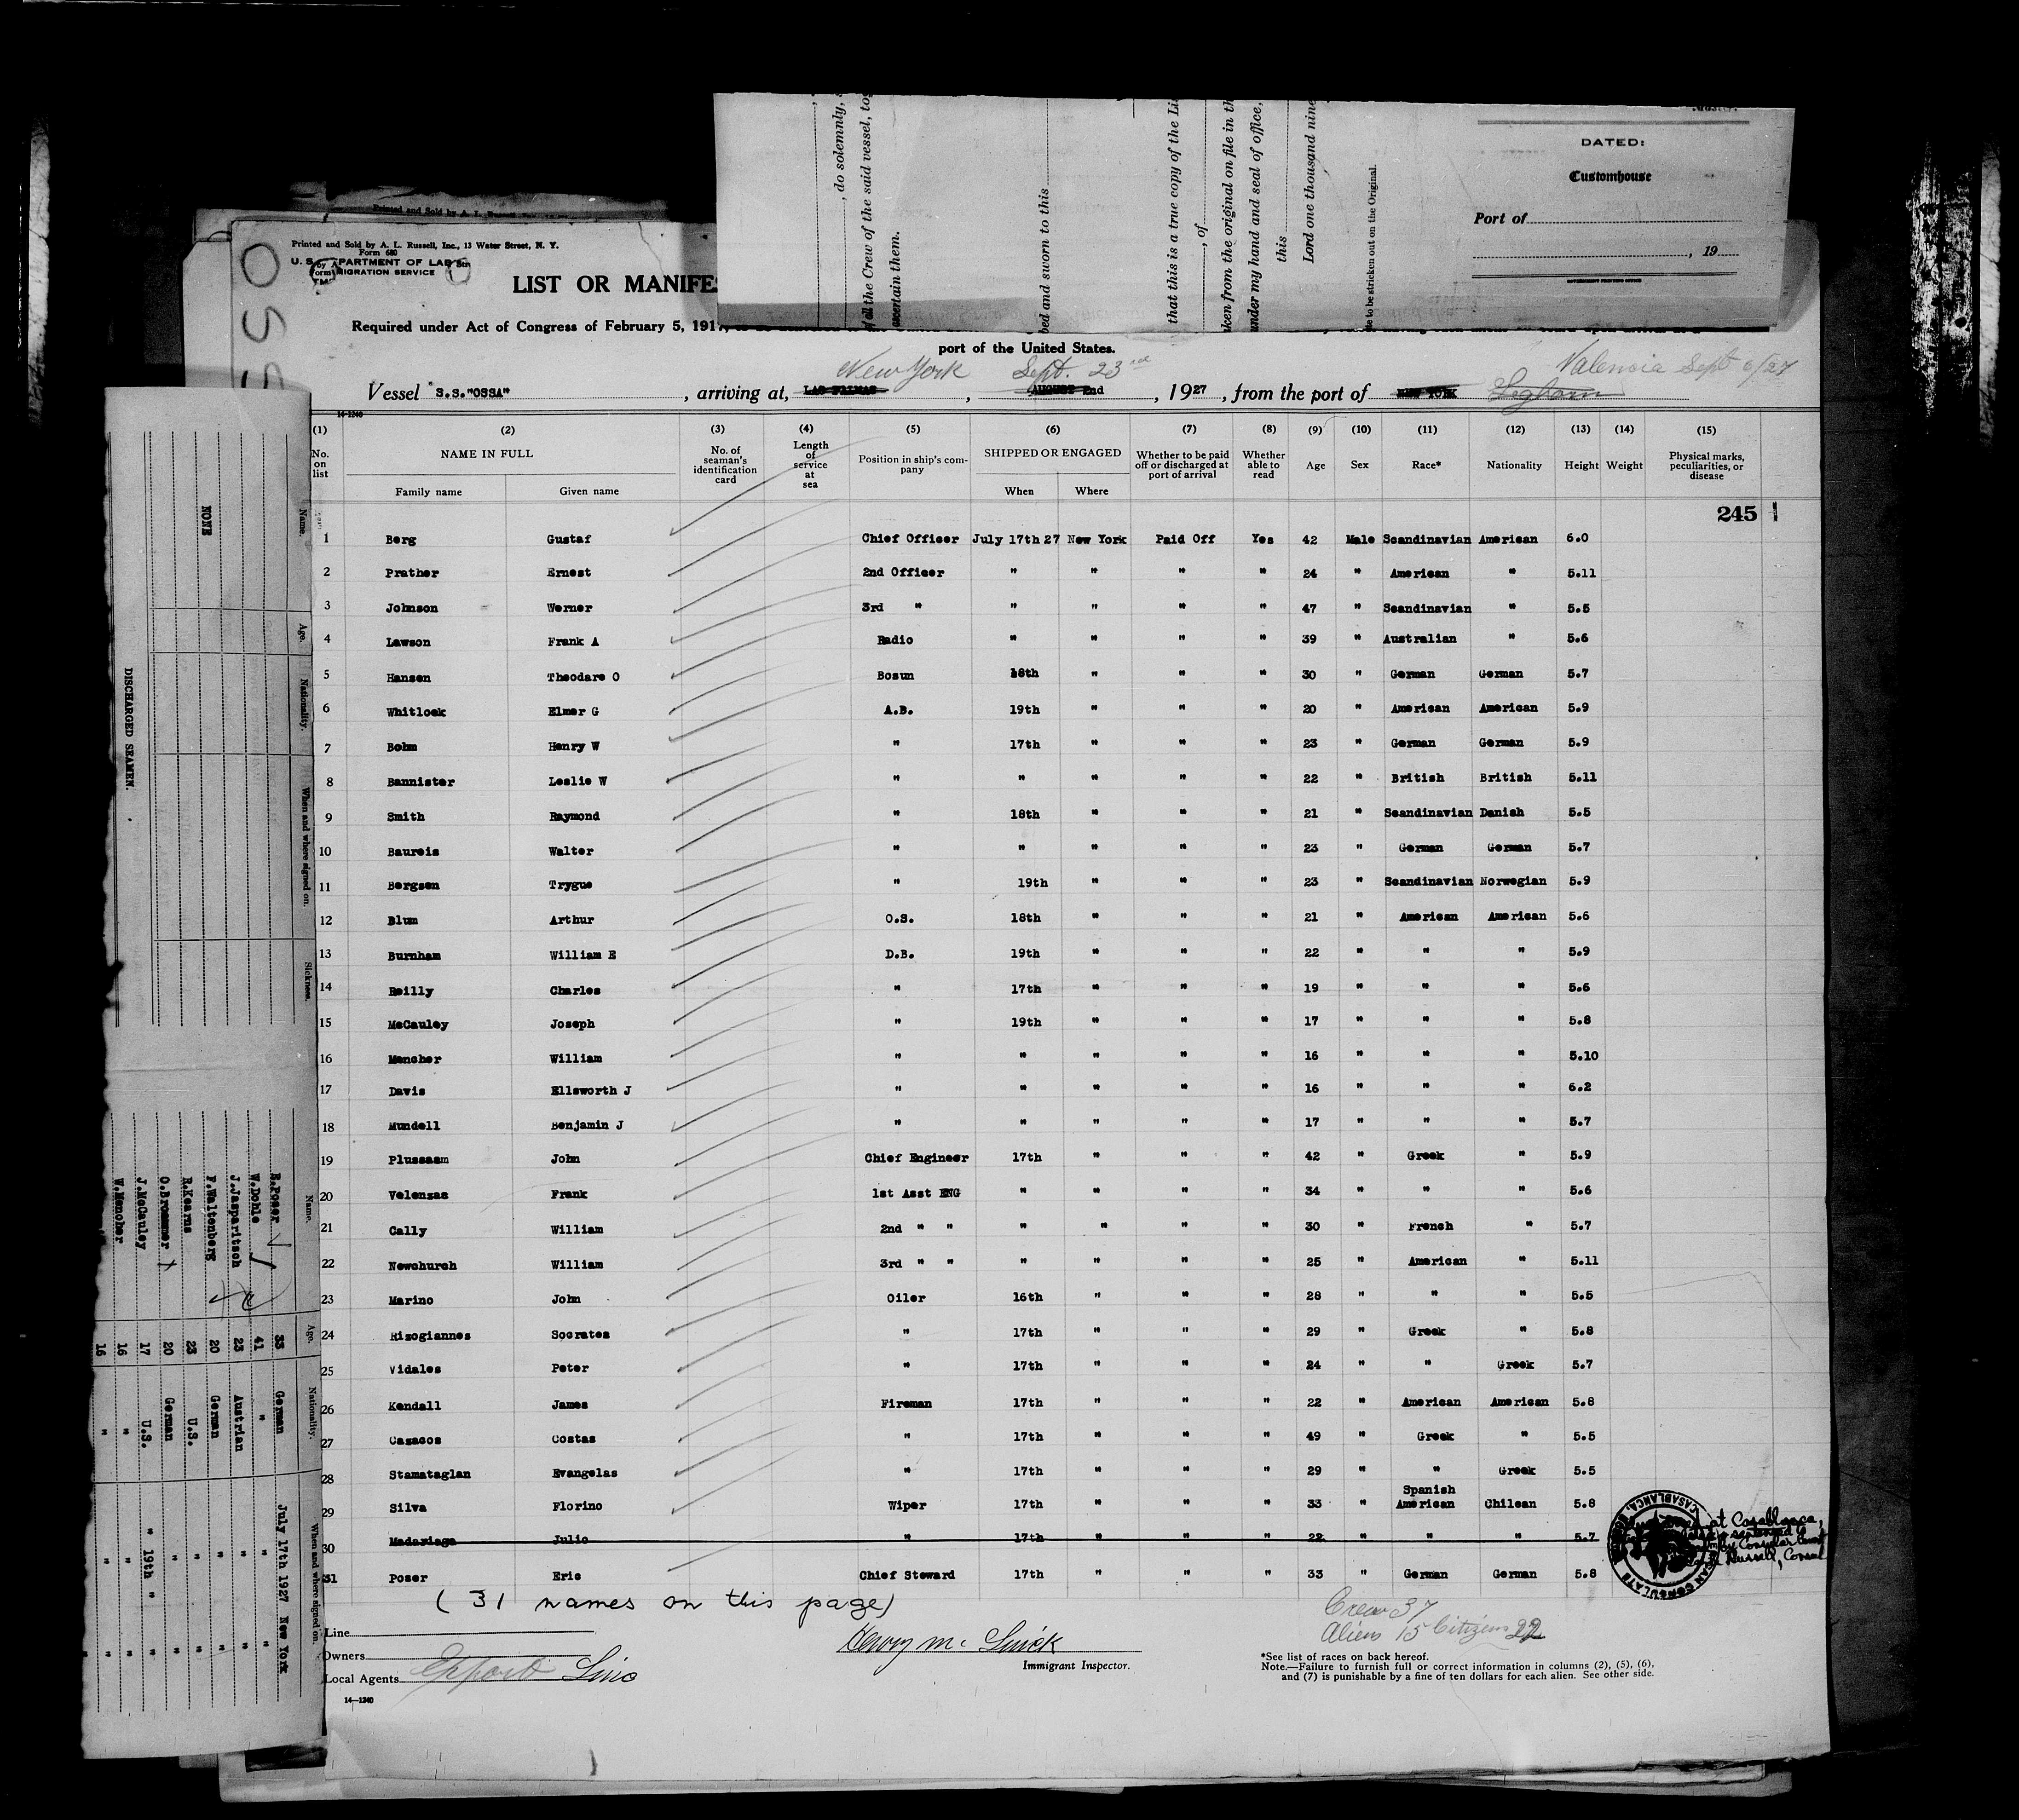 DATED:
Customhouse
Port of
, 19
, do solemnly,
of all the Crew of the said vessel,
ascertain them.
bed and sworn to this
that this is a true copy of the
, of
ken from the original on file in
under my hand and seal of office,
this
Lord one thousand nine
to be stricken out on the Original.
Printed and Sold by A. L. Russell
Printed and Sold by A. L. Russell, Inc., 13 Water Street, N. Y.
Form 680
U. S. DEPARTMENT OF LAB
MIGRATION SERVICE
OSS
LIST OR MANIFES
Required under Act of Congress of February 5, 1917,
port of the United States.
New York Sept. 23rd Valencia Sept 6/27
Vessel "S.S."OSSA" , arriving at, LAS PALMAS , AUGUST 2nd , 1927 , from the port of NEW YORK Leghorn
14-1240
(1) (2) (3) (4) (5) (6) (7) (8) (9) (10) (11) (12) (13) (14) (15)
No. on list NAME IN FULL Family name Given name No. of seaman's identification card Length of service at sea Position in ship's company SHIPPED OR ENGAGED When Where Whether to be paid off or discharged at port of arrival Whether able to read Age Sex Race* Nationality Height Weight Physical marks, peculiarities, or disease
245
1 Berg Gustaf Chief Officer July 17th 27 New York Paid Off Yes 42 Male Scandinavian American 6.0
2 Prather Ernest 2nd Officer " " " " 24 " American " 5.11
3 Johnson Werner 3rd " " " " " 47 " Scandinavian " 5.5
4 Lawson Frank A Radio " " " " 39 " Australian " 5.6
5 Hansen Theodare O Bosun 18th " " " 30 " German German 5.7
6 Whitlock Elmer G A.B. 19th " " " 20 " American American 5.9
7 Bohm Henry W " 17th " " " 23 " German German 5.9
8 Bannister Leslie W " " " " " 22 " British British 5.11
9 Smith Raymond " 18th " " " 21 " Scandinavian Danish 5.5
10 Baureis Walter " " " " " 23 " German German 5.7
11 Bergsen Trygue " 19th " " " 23 " Scandinavian Norwegian 5.9
12 Blum Arthur O.S. 18th " " " 21 " American American 5.6
13 Burnham William E D.B. 19th " " " 22 " " " 5.9
14 Reilly Charles " 17th " " " 19 " " " 5.6
15 McCauley Joseph " 19th " " " 17 " " " 5.8
16 Mencher William " " " " " 16 " " " 5.10
17 Davis Ellsworth J " " " " " 16 " " " 6.2
18 Mundell Benjamin J " " " " " 17 " " " 5.7
19 Plussaam John Chief Engineer 17th " " " 42 " Greek " 5.9
20 Velenzas Frank 1st Asst ENG " " " " 34 " " " 5.6
21 Cally William 2nd " " " " " " 30 " French " 5.7
22 Newchurch William 3rd " " " " " " 25 " American " 5.11
23 Marino John Oiler 16th " " " 28 " " " 5.5
24 Rizogiannes Socrates " 17th " " " 29 " Greek " 5.8
25 Vidales Peter " 17th " " " 24 " " Greek 5.7
26 Kendall James Fireman 17th " " " 22 " American American 5.8
27 Cazacos Costas " 17th " " " 49 " Greek " 5.5
28 Stamataglan Evangelas " 17th " " " 29 " " Greek 5.5
29 Silva Florino Wiper 17th " " " 33 " Spanish American Chilean 5.8
30 Madariaga Julio " 17th " " " 22 " " " 5.7
31 Poser Eric Chief Steward 17th " " " 33 " German German 5.8
at Casablanca,
sentenced to
by Consular Court
Russell, Consul
CASABLANCA.
CAN CONSULATE
( 31 names on this page)
Crew 37
Aliens 15 Citizens 22
Line
Owners
Local Agents Export Line
Henry Mc
Immigrant Inspector.
*See list of races on back hereof.
Note.—Failure to furnish full or correct information in columns (2), (5), (6),
and (7) is punishable by a fine of ten dollars for each alien. See other side.
14—1240
DISCHARGED SEAMEN.
Name. Age. Nationality. When and where signed on. Sickness.
NONE
Name. Age. Nationality. When and where signed on.
E.Poser 33 German July 17th 1927 New York
W.Dohle 41 " " "
J.Jasparitsch 23 Austrian " "
F.Waltenberg 20 German " "
R.Kearns 23 U.S. " "
O.Brommer 20 German " "
J.McCauley 17 U.S. " 19th " "
W.Menoher 16 " " "
16 " " "